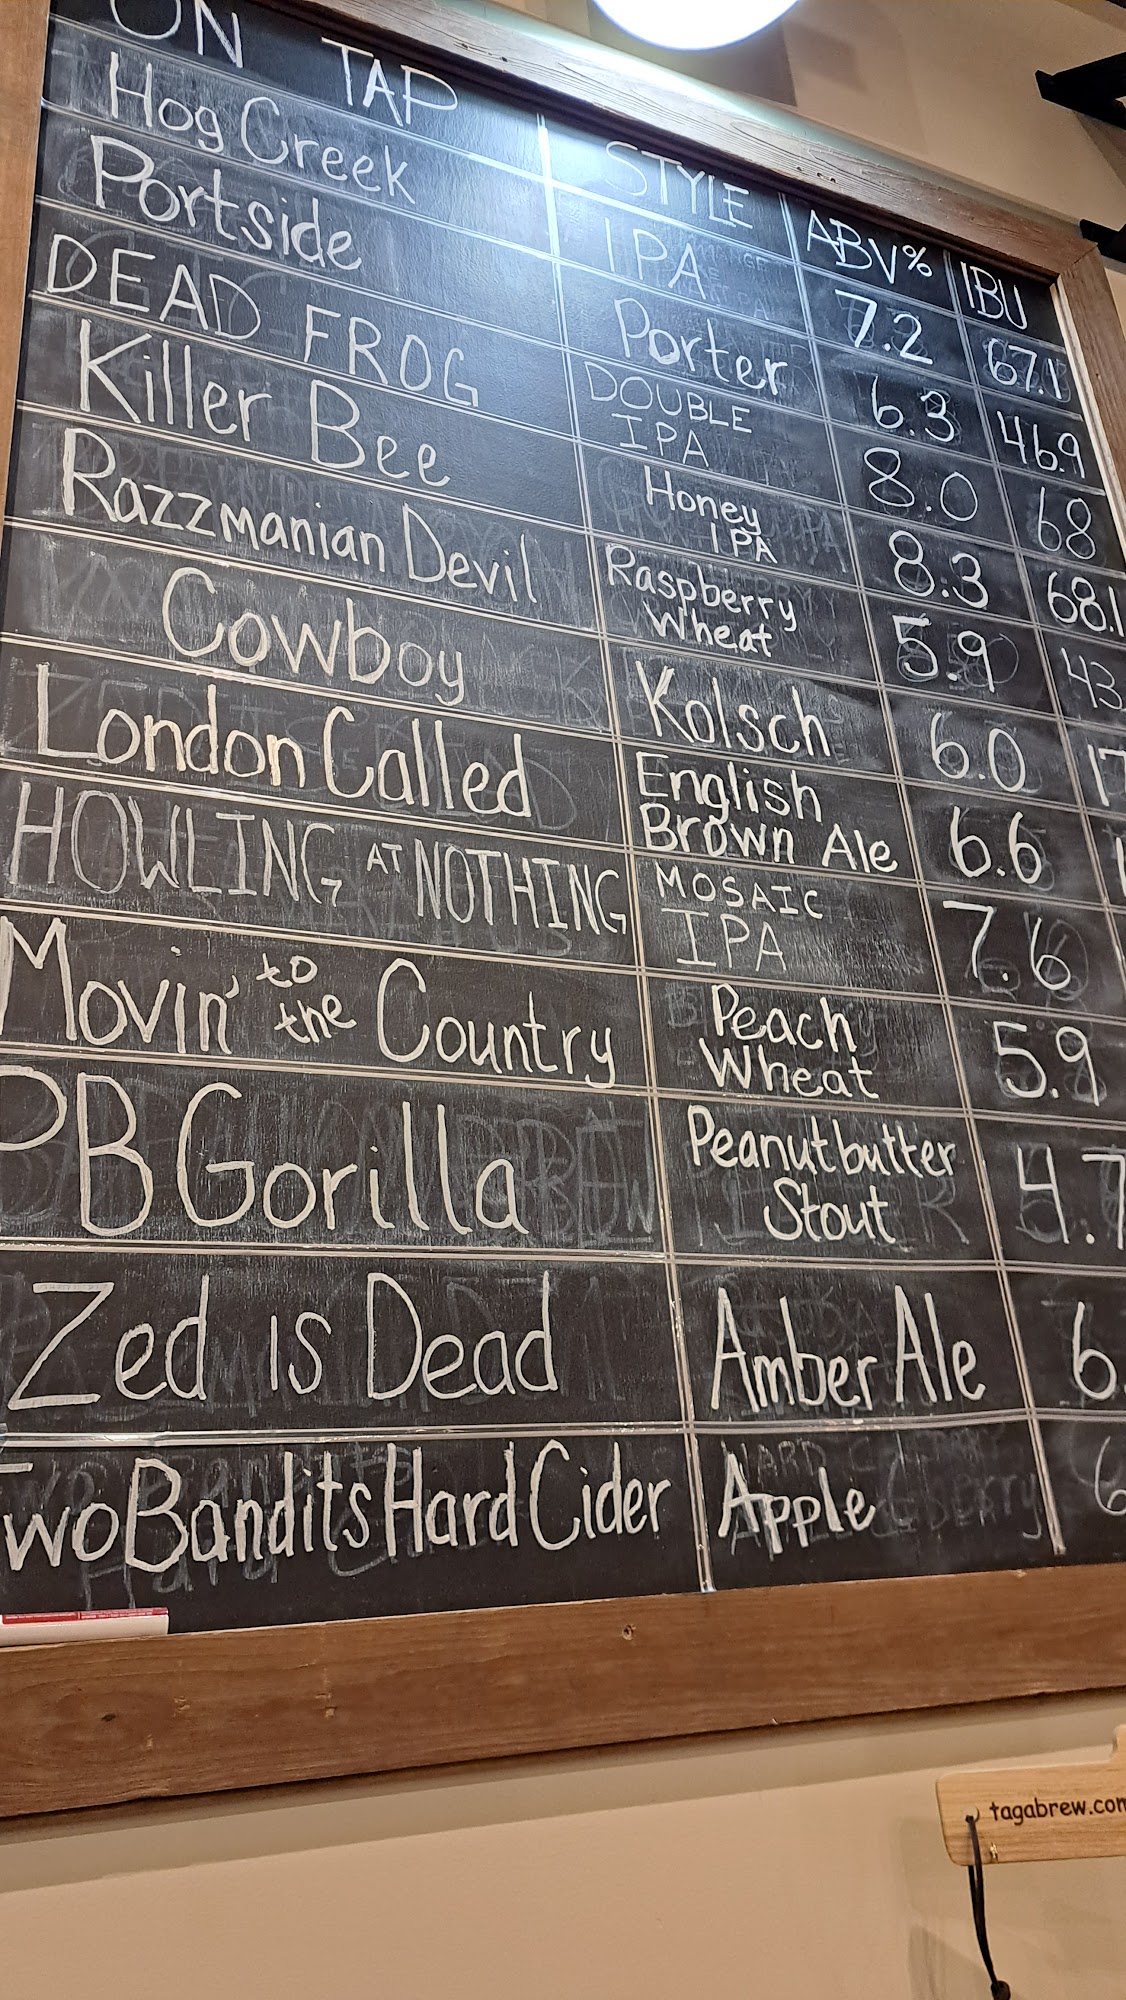 ON TAP STYLE ABV% IBU
Hog Creek IPA 7.2 67.1
Portside Porter 6.3 46.9
DEAD FROG DOUBLE IPA 8.0 68
Killer Bee Honey IPA 8.3 68.1
Razzmanian Devil Raspberry Wheat 5.9 43
Cowboy Kolsch 6.0 17
London Called English Brown Ale 6.6 1
HOWLING AT NOTHING MOSAIC IPA 7.6
Movin' to the Country Peach Wheat 5.9
PB Gorilla Peanutbutter Stout 4.7
Zed is Dead Amber Ale 6.
Two Bandits Hard Cider Apple 6
tagabrew.com